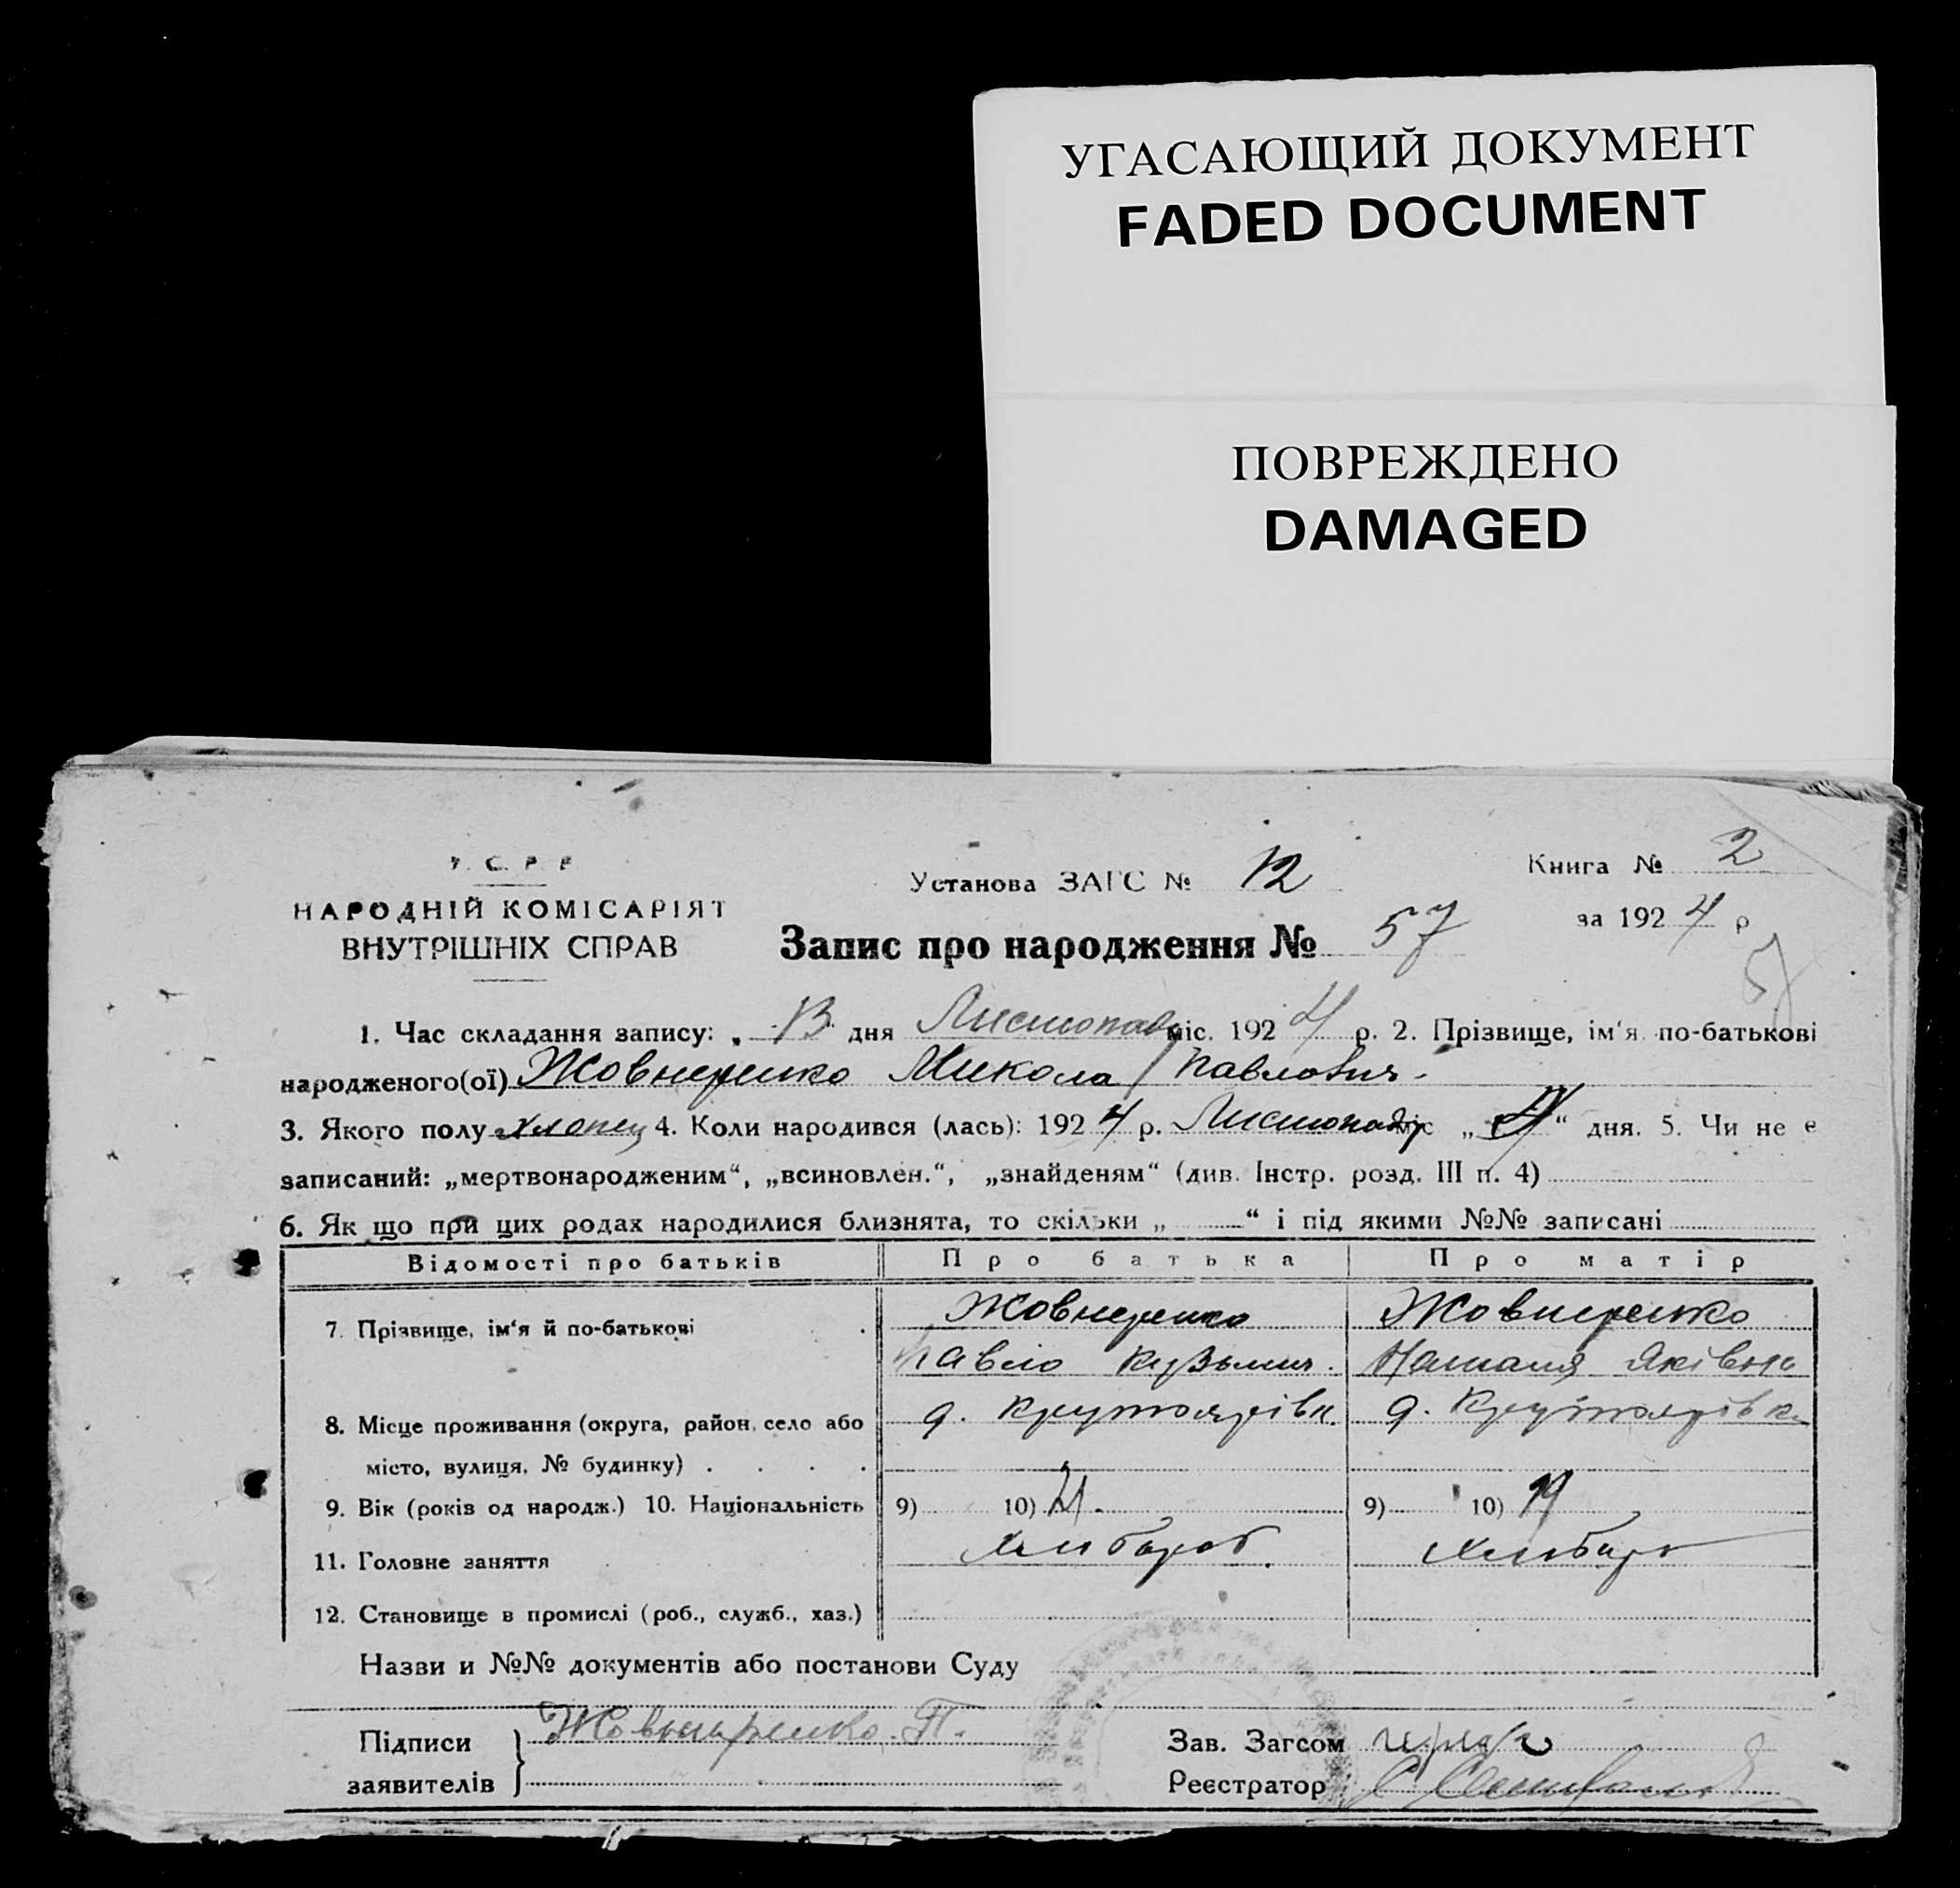 УГАСАЮЩИЙ ДОКУМЕНТ
FADED DOCUMENT
ПОВРЕЖДЕНО
DAMAGED
У. С. Р. Р.
НАРОДНІЙ КОМІСАРІЯТ
ВНУТРІШНІХ СПРАВ
Установа ЗАГС № 12
Книга № 2
за 1924 р
Запис про народження № 57
57
1. Час складання запису: „ 13 дня Листопад міс. 1924 р. 2. Прізвище, ім‘я по-батькові
народженого(ої) Жовнеренко Микола Павлович.
3. Якого полу хлопец 4. Коли народився (лась): 1924 р. Листопаду міс „ “ дня. 5. Чи не є
записаний: „мертвонародженим“, „всиновлен.“, „знайденям“ (див. Інстр. розд. III п. 4)
6. Як що при цих родах народилися близнята, то скільки „ “ і під якими №№ записані
Відомості про батьків Про батька Про матір
7. Прізвище, ім‘я й по-батькові Жовнеренко Жовнеренко
Павло Кузьмич. Наталія Яківна
8. Місце проживання (округа, район, село або д. Крутоярівк. д. Крутоярівка
місто, вулиця, № будинку)
9. Вік (років од народж.) 10. Національність 9) 10) 21. 9) 10) 19
11. Головне заняття Хлибороб. Хлибор
12. Становище в промислі (роб., служб., хаз.)
Назви и №№ документів або постанови Суду
Підписи Жовнеренко П.
заявителів
Зав. Загсом
Реєстратор